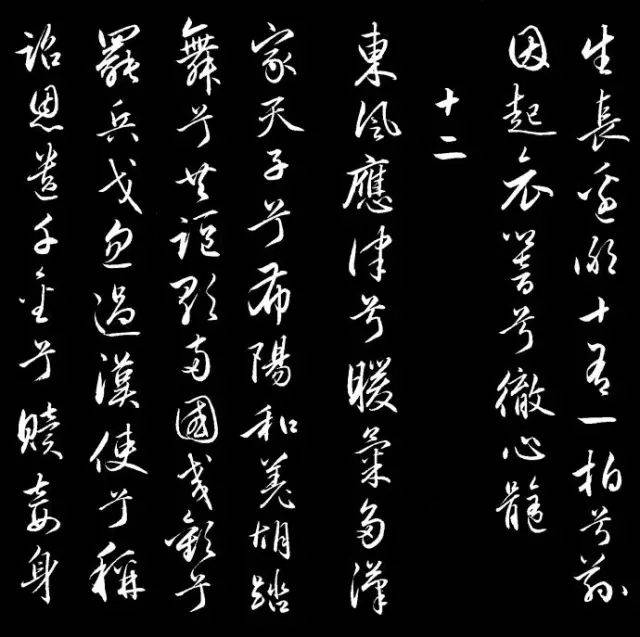 生長邊鄙十有一拍兮茲
因起哀響兮徹心髓
十二
東風應律兮暖氣多漢
家天子兮布陽和羌胡蹈
舞兮共謳歌兩國交歡兮
罷兵戈忽遇漢使兮稱
詔恩遺千金兮贖妾身